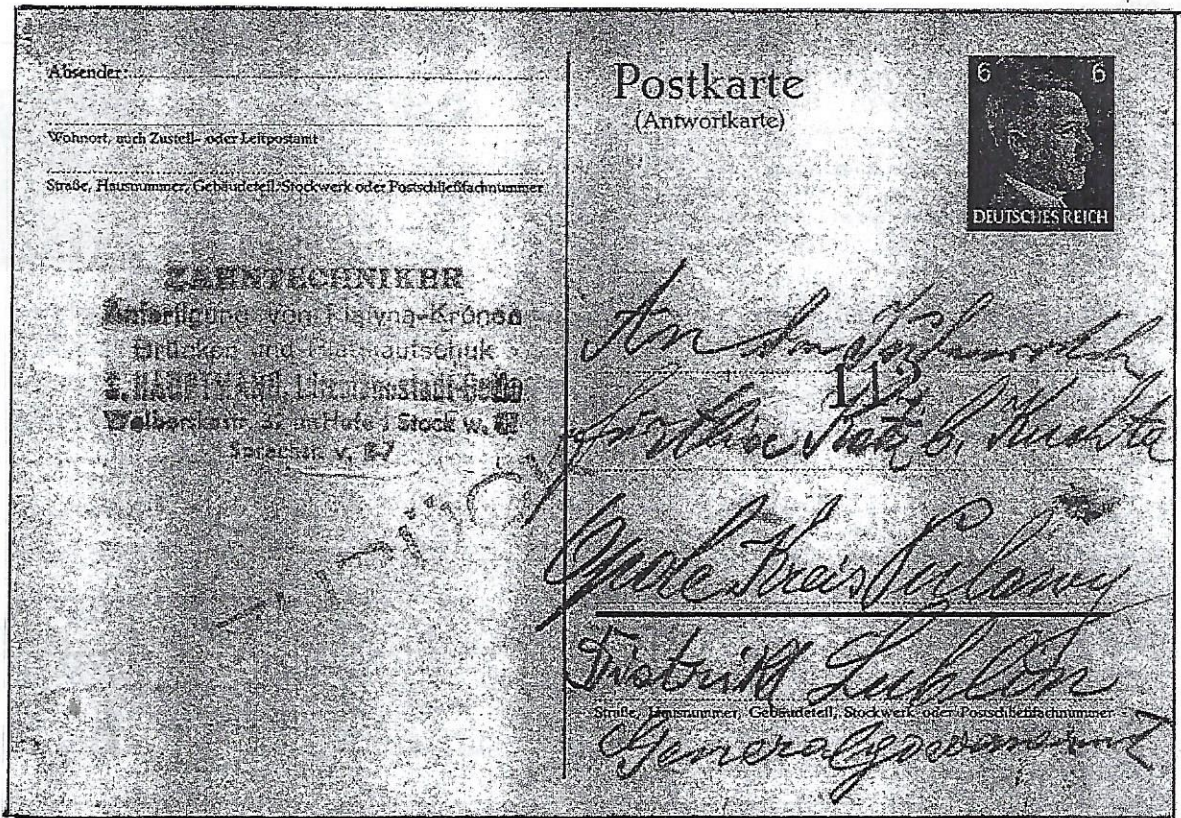 Absender:
Wohnort, auch Zustell- oder Leitpostamt
Straße, Hausnummer, Gebäudeteil, Stockwerk oder Postschließfachnummer
ZAHNTECHNIKER
Anfertigung von Platyna-Kronen
Brücken und Plattkautschuk
S. HAUPTMANN, Litzmannstadt-Getto
im Hofe I Stock w.
Postkarte
(Antwortkarte)
6 6
DEUTSCHES REICH
An den
112
für b. Kuchta
Opole Kreis Pulawy
Distrikt Lublin
Straße, Hausnummer, Gebäudeteil, Stockwerk oder Postschließfachnummer
Generalgouvernement